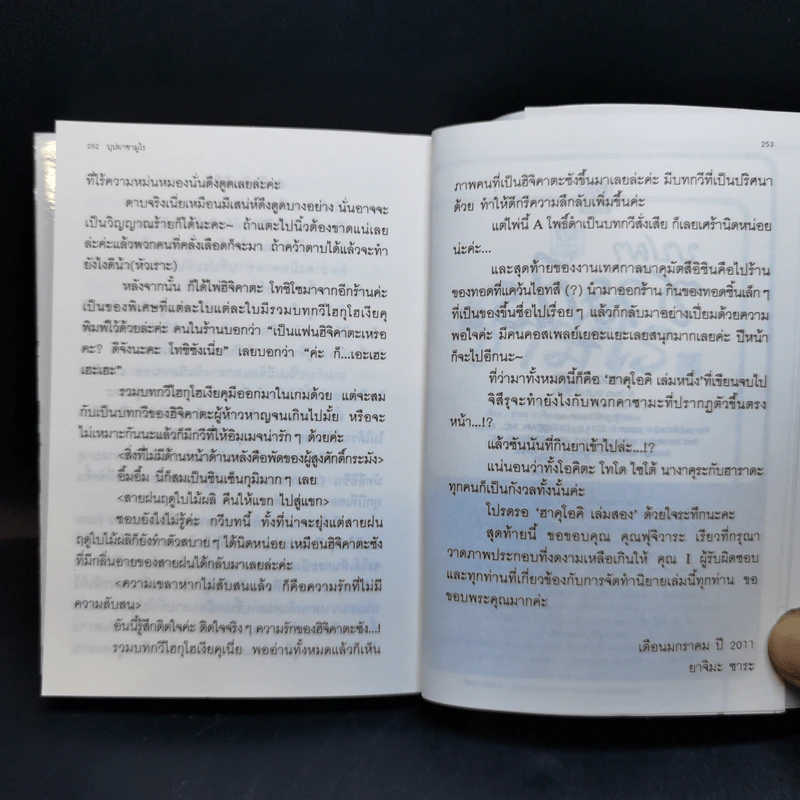 252 บุปผาซามูไร
ที่ไร้ความหม่นหมองนั่นดึงดูดเลยล่ะค่ะ
ดาบจริงเนี่ยเหมือนมีเสน่ห์ดึงดูดบางอย่าง นั่นอาจจะ
เป็นวิญญาณร้ายก็ได้นะคะ~ ถ้าแตะไปนิ้วต้องขาดแน่เลย
ล่ะค่ะแล้วพวกคนที่คลั่งเลือดก็จะมา ถ้าคว้าดาบได้แล้วจะทำ
ยังไงดีน้า(หัวเราะ)
หลังจากนั้น ก็ได้ไพ่ฮิจิคาตะ โทชิโซมาจากอีกร้านค่ะ
เป็นของพิเศษที่แต่ละใบแต่ละใบมีรวมบทกวีไฮกุโฮเงียคุ
พิมพ์ไว้ด้วยล่ะค่ะ คนในร้านบอกว่า “เป็นแฟนฮิจิคาตะเหรอ
คะ? ดีจังนะคะ โทชิซังเนี่ย” เลยบอกว่า “ค่ะ ก็...เอะเฮะ
เฮะเฮะ”
รวมบทกวีไฮกุโฮเงียคุมีออกมาในเกมด้วย แต่จะสม
กับเป็นบทกวีของฮิจิคาตะผู้ห้าวหาญจนเกินไปมั้ย หรือจะ
ไม่เหมาะกันนะแล้วก็มีกวีที่ให้อิมเมจน่ารักๆ ด้วยค่ะ
<สิ่งที่ไม่มีด้านหน้าด้านหลังคือพัดของผู้สูงศักดิ์กระมัง>
อื้มอื้ม นี่ก็สมเป็นชินเซ็นกุมิมากๆ เลย
<สายฝนฤดูใบไม้ผลิ คืนให้แขก ไปสู่แขก>
ชอบยังไงไม่รู้ค่ะ กวีบทนี้ ทั้งที่น่าจะยุ่งแต่สายฝน
ฤดูใบไม้ผลิก็ยังทำตัวสบายๆ ได้นิดหน่อย เหมือนฮิจิคาตะซัง
ที่มีกลิ่นอายของสายฝนได้กลับมาเลยล่ะค่ะ
<ความเขลาหากไม่สับสนแล้ว ก็คือความรักที่ไม่มี
ความสับสน>
อันนี้รู้สึกติดใจค่ะ ติดใจจริงๆ ความรักของฮิจิคาตะซัง...!
รวมบทกวีไฮกุโฮเงียคุเนี่ย พออ่านทั้งหมดแล้วก็เห็น
253
ภาพคนที่เป็นฮิจิคาตะซังขึ้นมาเลยล่ะค่ะ มีบทกวีที่เป็นปริศนา
ด้วย ทำให้ดีกรีความลึกลับเพิ่มขึ้นค่ะ
แต่ไพ่นี้ A โพธิ์ดำเป็นบทกวีสั่งเสีย ก็เลยเศร้านิดหน่อย
น่ะค่ะ...
และสุดท้ายของงานเทศกาลบาคุมัตสึอิชินคือไปร้าน
ของทอดที่แคว้นไอทสึ (?) นำมาออกร้าน กินของทอดชิ้นเล็กๆ
ที่เป็นของขึ้นชื่อไปเรื่อยๆ แล้วก็กลับมาอย่างเปี่ยมด้วยความ
พอใจค่ะ มีคนคอสเพลย์เยอะแยะเลยสนุกมากเลยค่ะ ปีหน้า
ก็จะไปอีกนะ~
ที่ว่ามาทั้งหมดนี้ก็คือ ‘ฮาคุโอคิ เล่มหนึ่ง’ที่เขียนจบไป
จิสึรุจะทำยังไงกับพวกคาซามะที่ปรากฏตัวขึ้นตรง
หน้า...!?
แล้วซันนันที่กินยาเข้าไปล่ะ...!?
แน่นอนว่าทั้งโอคิตะ โทโด ไซโต้ นางาคุระกับฮาราดะ
ทุกคนก็เป็นกังวลทั้งนั้นค่ะ
โปรดรอ ‘ฮาคุโอคิ เล่มสอง’ ด้วยใจระทึกนะคะ
สุดท้ายนี้ ขอขอบคุณ คุณฟุจิวาระ เรียวที่กรุณา
วาดภาพประกอบที่งดงามเหลือเกินให้ คุณ I ผู้รับผิดชอบ
และทุกท่านที่เกี่ยวข้องกับการจัดทำนิยายเล่มนี้ทุกท่าน ขอ
ขอบพระคุณมากค่ะ
เดือนมกราคม ปี 2011
ยาจิมะ ซาระ